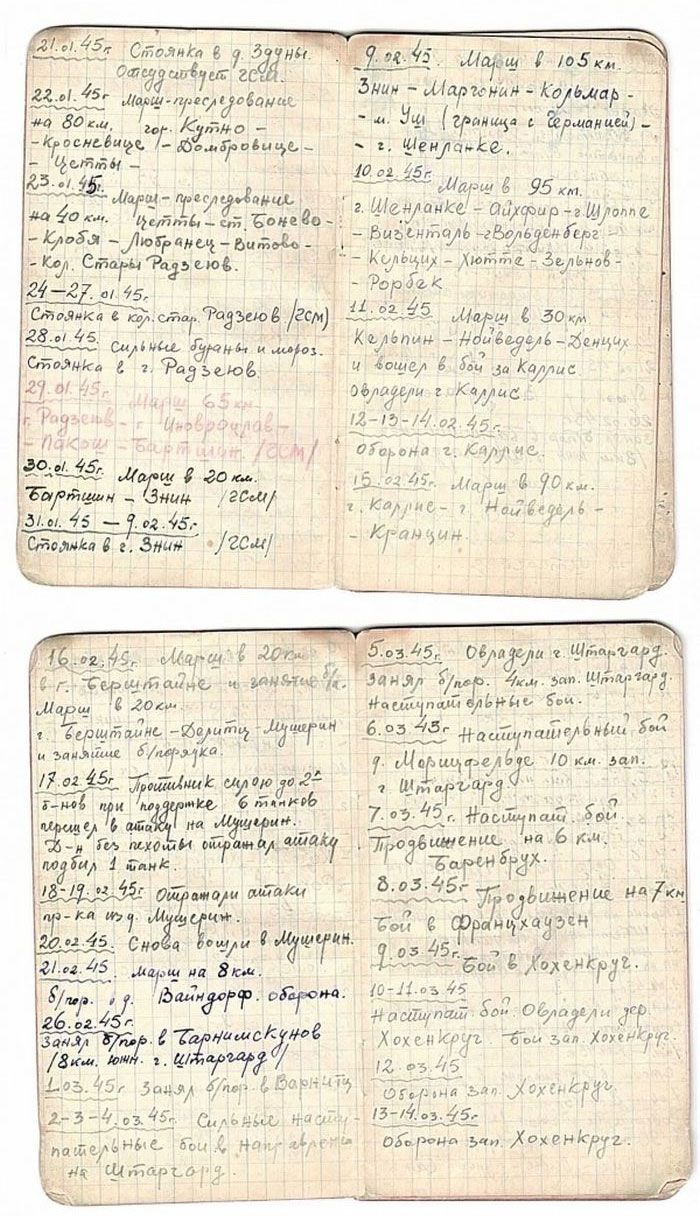 21.01.45г. Стоянка в д. Здуны.
Отсудствует ГСМ.
22.01.45г Марш-преследование
на 80 км. гор. Кутно -
- Кросневице - Домбровице -
- Цетты -
23.01.45г. Марш-преследование
на 40 км. Цетты - ст. Бонево -
- Клобя - Любранец - Витово -
- Кол. Стары Радзеюв.
24-27.01.45г.
Стоянка в кол. стар. Радзеюв /ГСМ/
28.01.45. Сильные бураны и мороз.
Стоянка в г. Радзеюв.
29.01.45г. Марш 65 км.
г. Радзеюв - г. Иновроцлав -
- Пакош - Бартшин. /ГСМ/
30.01.45г. Марш в 20 км.
Бартшин - Знин /ГСМ/
31.01.45 - 9.02.45г
Стоянка в г. Знин /ГСМ/
9.02.45. Марш в 105 км.
Знин - Маргонин - Кольмар -
- м. Уш (граница с Германией) -
- г. Шенланке.
10.02.45г.
Марш в 95 км.
г. Шенланке - Айхфир - г Шлоппе
- Визенталь - г Вольденберг -
- Кельцих - Хютте - Зельнов -
- Рорбек
11.02.45. Марш в 30 км
Кельпин - Нойведель - Денцих
и вошел в бой за Каллис
овладели г Каллис.
12-13-14.02.45г.
оборона г. Каллис.
15.02.45г. Марш в 90 км.
г. Каллис - г. Нойведель -
- Кранцин.
16.02.45г. Марш в 20 км
в г. Берштайне и занятие б/п.
Марш в 20 км.
г. Берштайне - Делитц - Мушерин
и занятие б/порядка.
17.02.45г Противник силою до 2х
б-нов при поддержке 6 танков
перешел в атаку на Мушерин.
Д-н без пехоты отражал атаку
подбил 1 танк.
18-19.02.45г Отражали атаки
пр-ка из д. Мушерин.
20.02.45. Снова вошли в Мушерин.
21.02.45. Марш на 8 км.
б/пор. о д. Вайндорф. оборона.
26.02.45г.
Занял б/пор. в Барнимскунов
/8 км. южн. г. Штаргард/
1.03.45г Занял б/пор. в Варнитц
2-3-4.03.45г. Сильные насту-
пательные бои в направлении
на Штаргард.
5.03.45г. Овладели г. Штаргард.
занял б/пор. 4 км. зап. Штаргард.
Наступательные бои.
6.03.45г Наступательный бой
д. Морицфельде 10 км. зап.
г. Штаргард.
7.03.45г. Наступат. бой.
Продвижение на 6 км.
Баренбрух.
8.03.45г Продвижение на 7 км
Бой в Францхаузен
9.03.45г. Бой в Хохенкруг.
10-11.03.45
Наступат. бой. Овладели дер.
Хохенкруг. Бои зап. Хохенкруг.
12.03.45
Оборона зап. Хохенкруг
13-14.03.45г.
Оборона зап. Хохенкруг.